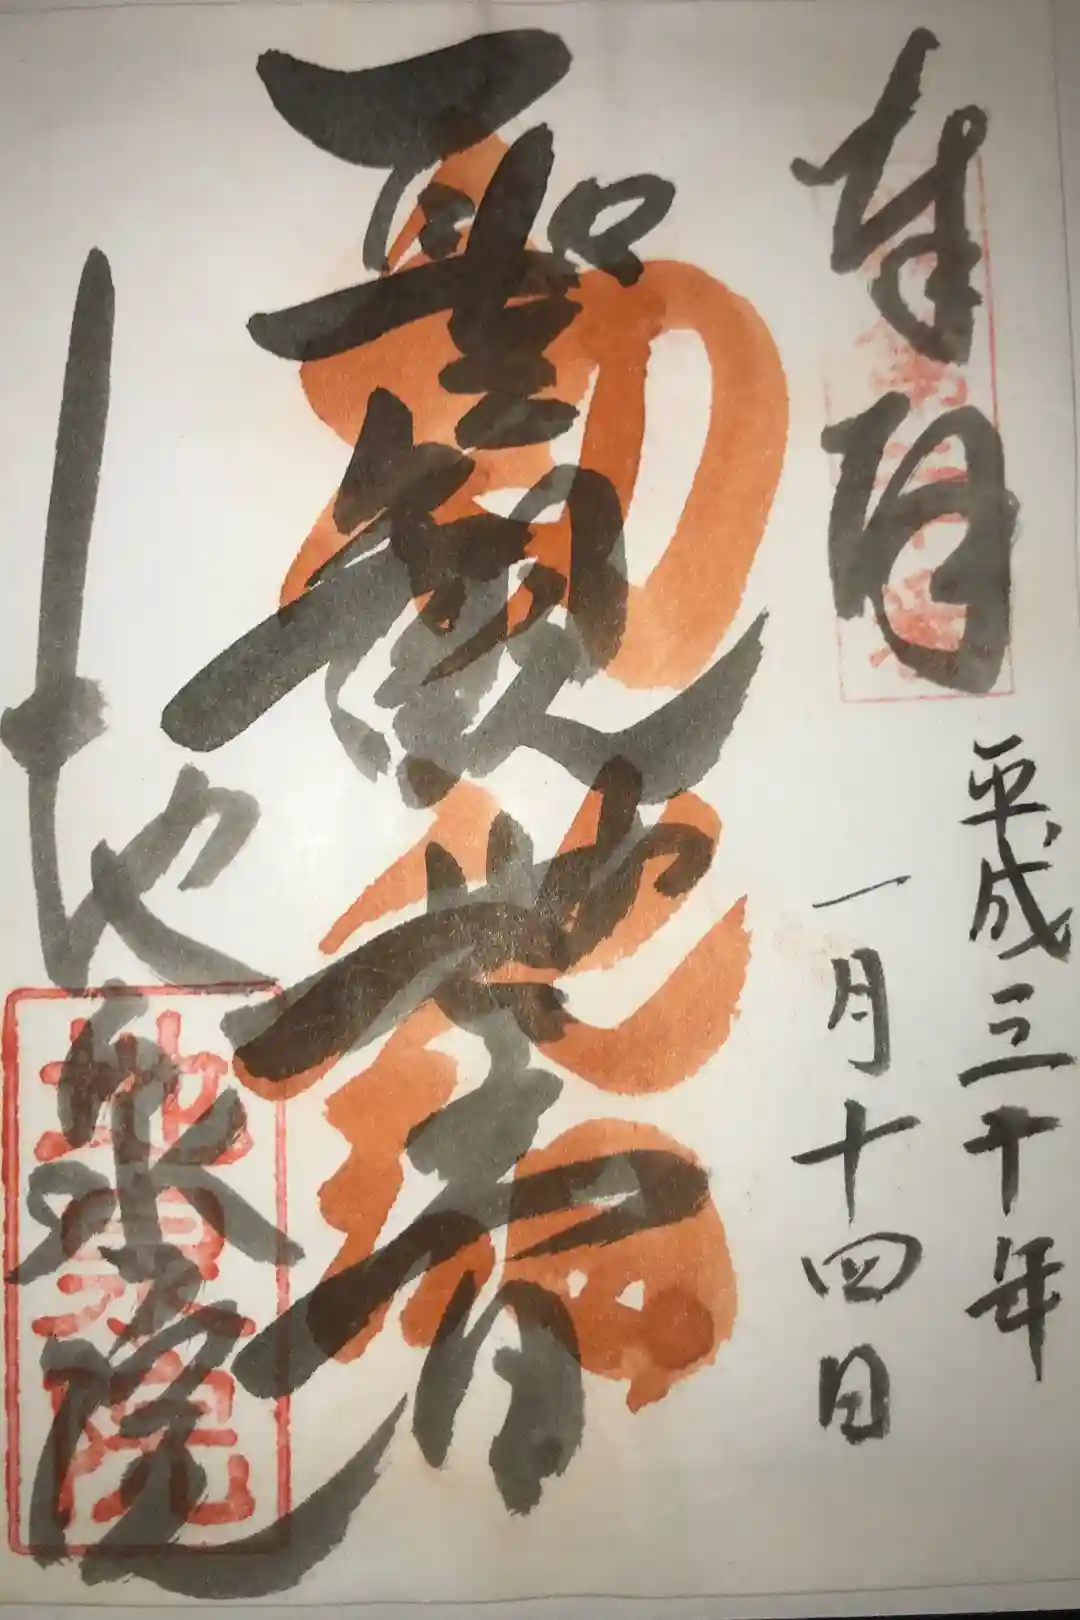 奉拝
平成三十年
一月十四日
聖観世音
地泉院
地泉院